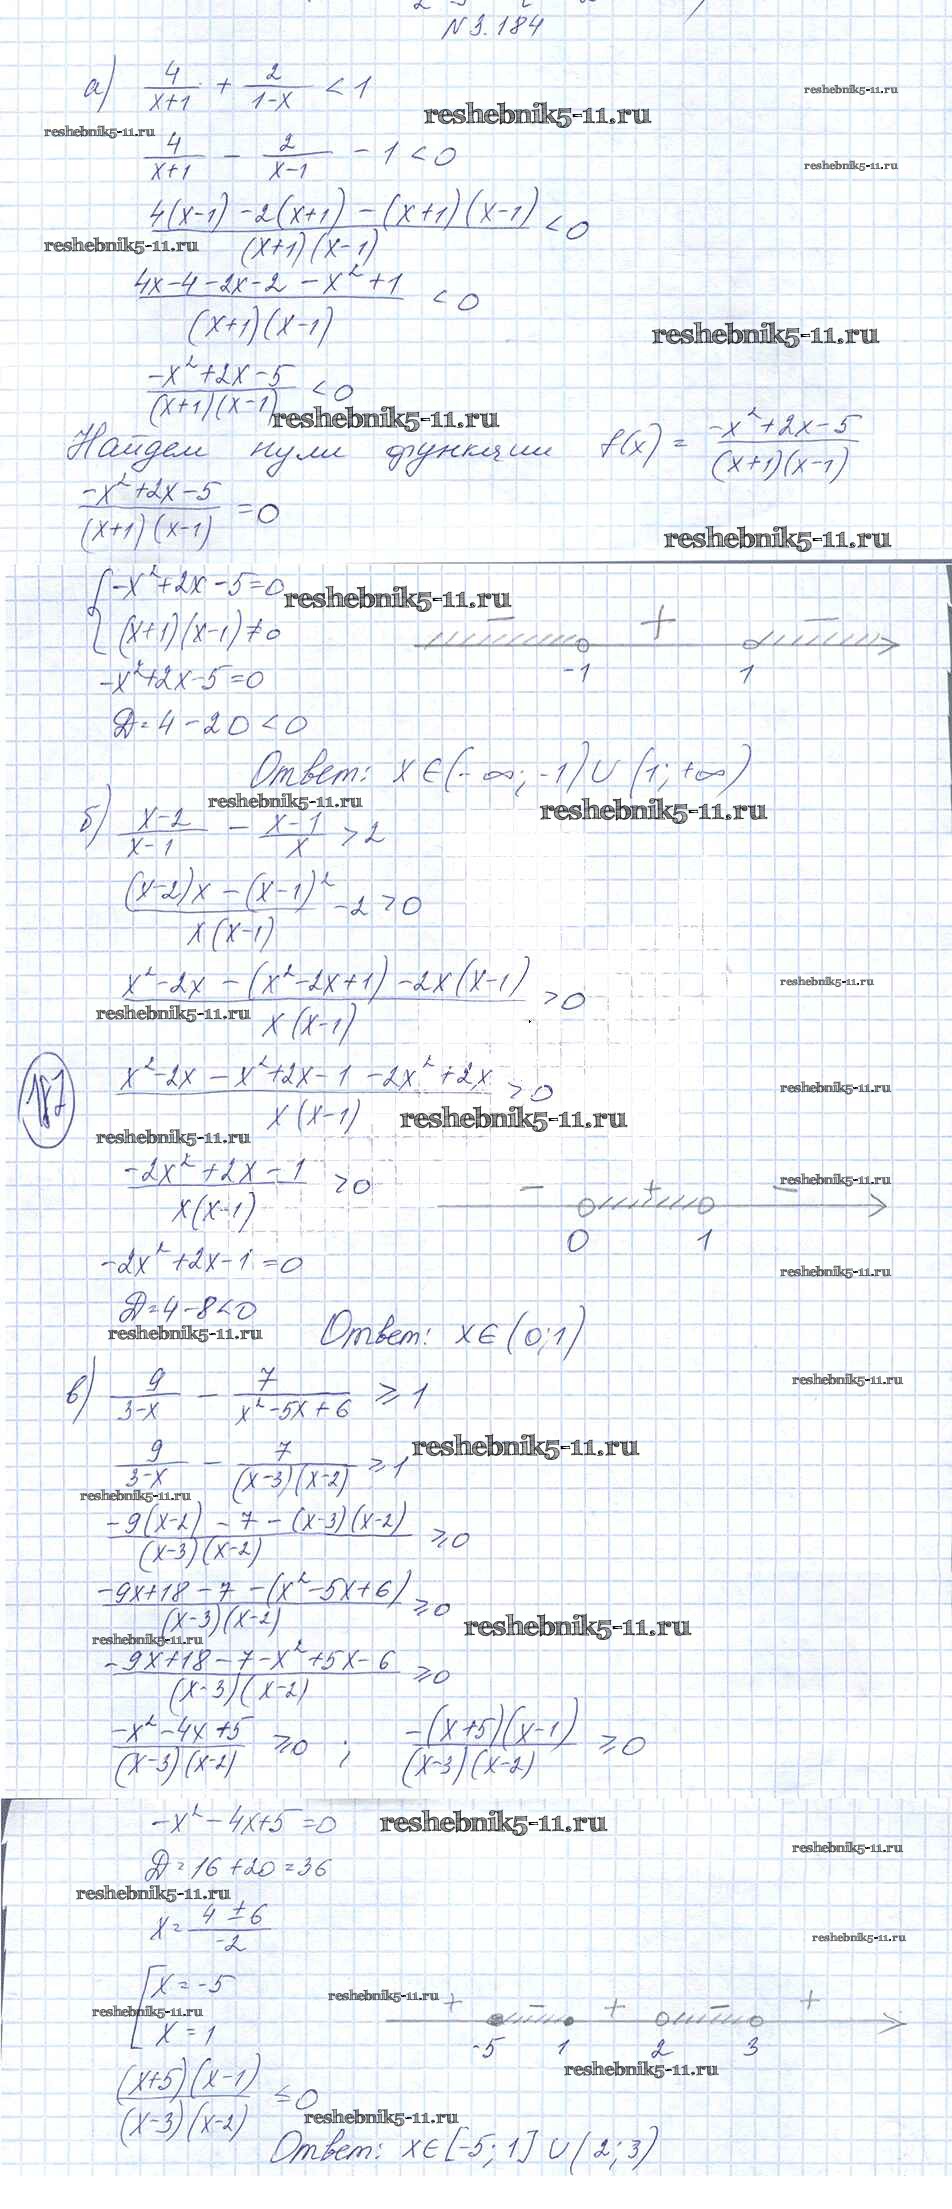 N 3.184
а) 4/(x+1) + 2/(1-x) < 1
reshebnik5-11.ru
reshebnik5-11.ru
reshebnik5-11.ru
4/(x+1) - 2/(x-1) - 1 < 0
reshebnik5-11.ru
(4(x-1) - 2(x+1) - (x+1)(x-1))/((x+1)(x-1)) < 0
reshebnik5-11.ru
(4x-4-2x-2-x²+1)/((x+1)(x-1)) < 0
reshebnik5-11.ru
(-x²+2x-5)/((x+1)(x-1)) < 0
reshebnik5-11.ru
Найдем нули функции f(x) = (-x²+2x-5)/((x+1)(x-1))
(-x²+2x-5)/((x+1)(x-1)) = 0
reshebnik5-11.ru
{ -x²+2x-5=0
reshebnik5-11.ru
(x+1)(x-1)≠0
- + -
-1 1
-x²+2x-5=0
Д=4-20<0
Ответ: x∈(-∞;-1)∪(1;+∞)
reshebnik5-11.ru
reshebnik5-11.ru
б) (x-2)/(x-1) - (x-1)/x > 2
((x-2)x-(x-1)²)/(x(x-1)) - 2 > 0
(x²-2x-(x²-2x+1)-2x(x-1))/(x(x-1)) > 0
reshebnik5-11.ru
reshebnik5-11.ru
187
(x²-2x-x²+2x-1-2x²+2x)/(x(x-1)) > 0
reshebnik5-11.ru
reshebnik5-11.ru
reshebnik5-11.ru
(-2x²+2x-1)/(x(x-1)) > 0
reshebnik5-11.ru
- + -
0 1
-2x²+2x-1=0
reshebnik5-11.ru
Д=4-8<0
reshebnik5-11.ru
Ответ: x∈(0;1)
в) 9/(3-x) - 7/(x²-5x+6) ≥ 1
reshebnik5-11.ru
9/(3-x) - 7/((x-3)(x-2)) ≥ 1
reshebnik5-11.ru
reshebnik5-11.ru
(-9(x-2)-7-(x-3)(x-2))/((x-3)(x-2)) ≥ 0
(-9x+18-7-(x²-5x+6))/((x-3)(x-2)) ≥ 0
reshebnik5-11.ru
reshebnik5-11.ru
(-9x+18-7-x²+5x-6)/((x-3)(x-2)) ≥ 0
(-x²-4x+5)/((x-3)(x-2)) ≥ 0 ; (-(x+5)(x-1))/((x-3)(x-2)) ≥ 0
-x²-4x+5=0
reshebnik5-11.ru
reshebnik5-11.ru
Д=16+20=36
reshebnik5-11.ru
x=(4±6)/(-2)
reshebnik5-11.ru
[ x=-5
reshebnik5-11.ru
reshebnik5-11.ru
x=1
+ - + - +
-5 1 2 3
reshebnik5-11.ru
((x+5)(x-1))/((x-3)(x-2)) ≤ 0
reshebnik5-11.ru
Ответ: x∈[-5;1]∪(2;3)